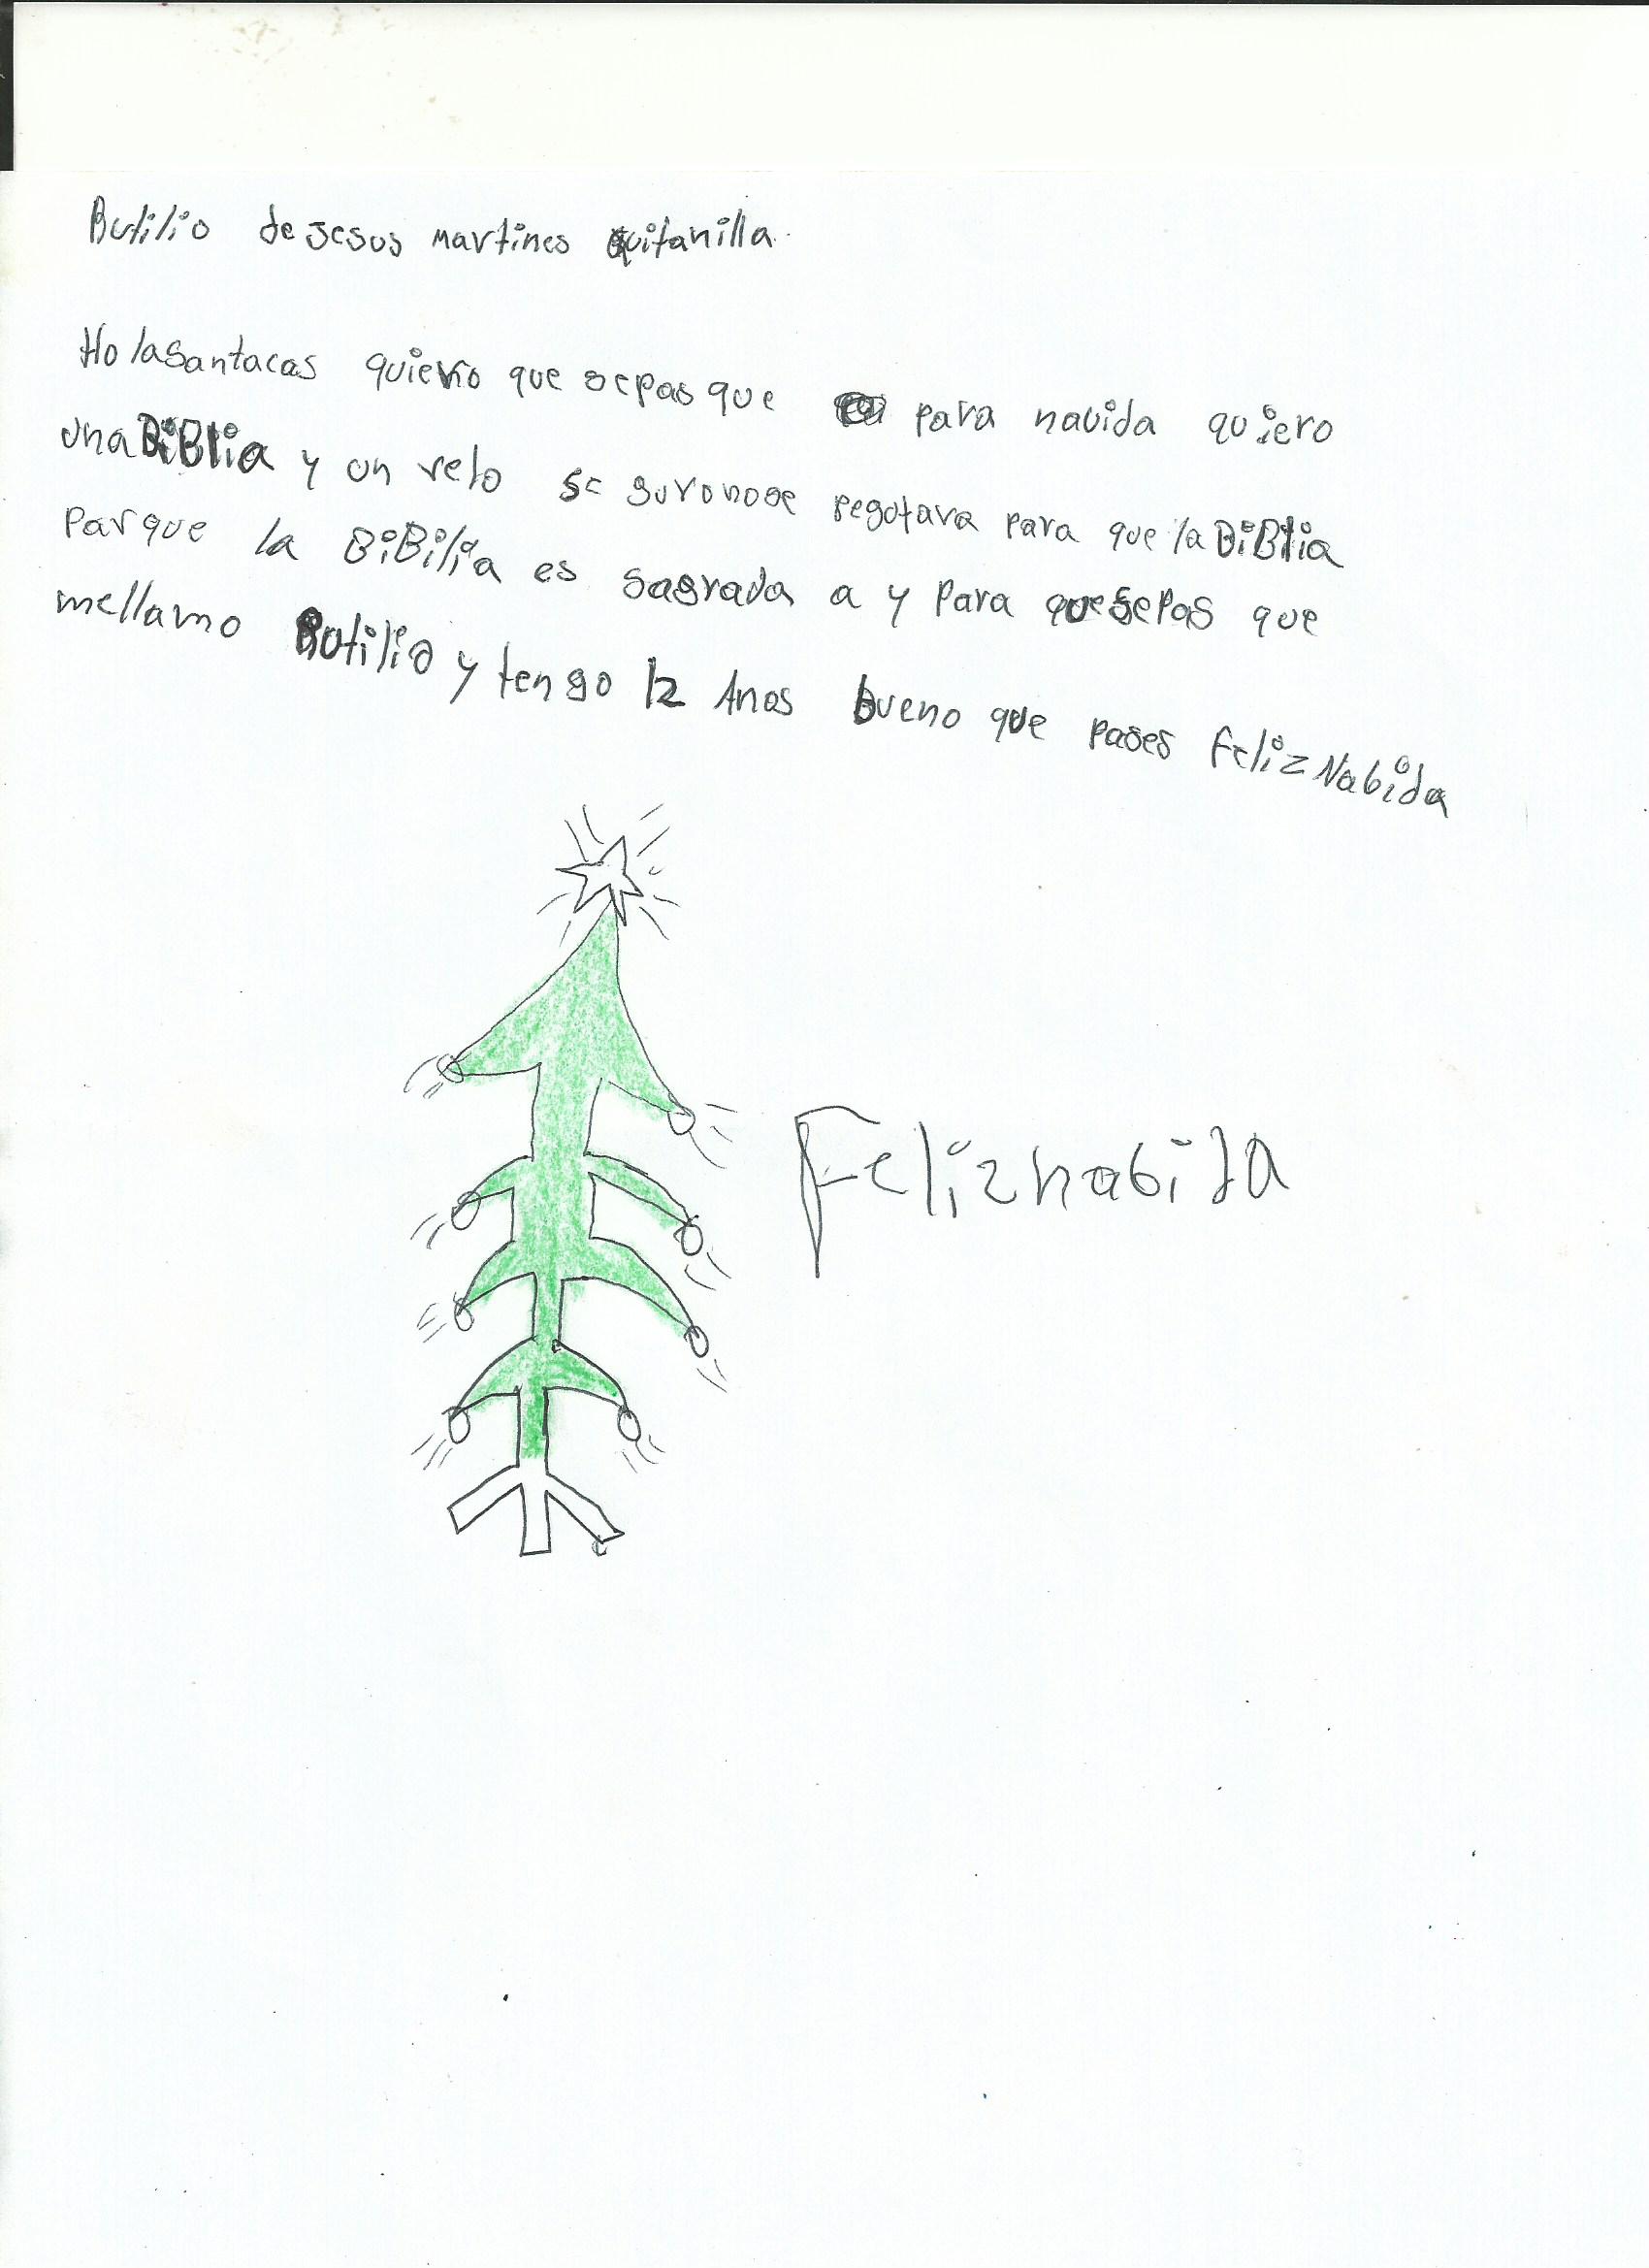 Butilio de jesus martines quitanilla
Holasantacas quiero que sepas que para navida quiero
una BiBlia y un relo se guro no se pegotara para que la BiBlia
Parque la BiBilia es sagrada a y para que sepas que
mellamo Rutilio y tengo 12 Anos bueno que pases Feliz Nabida
Feliz nabida